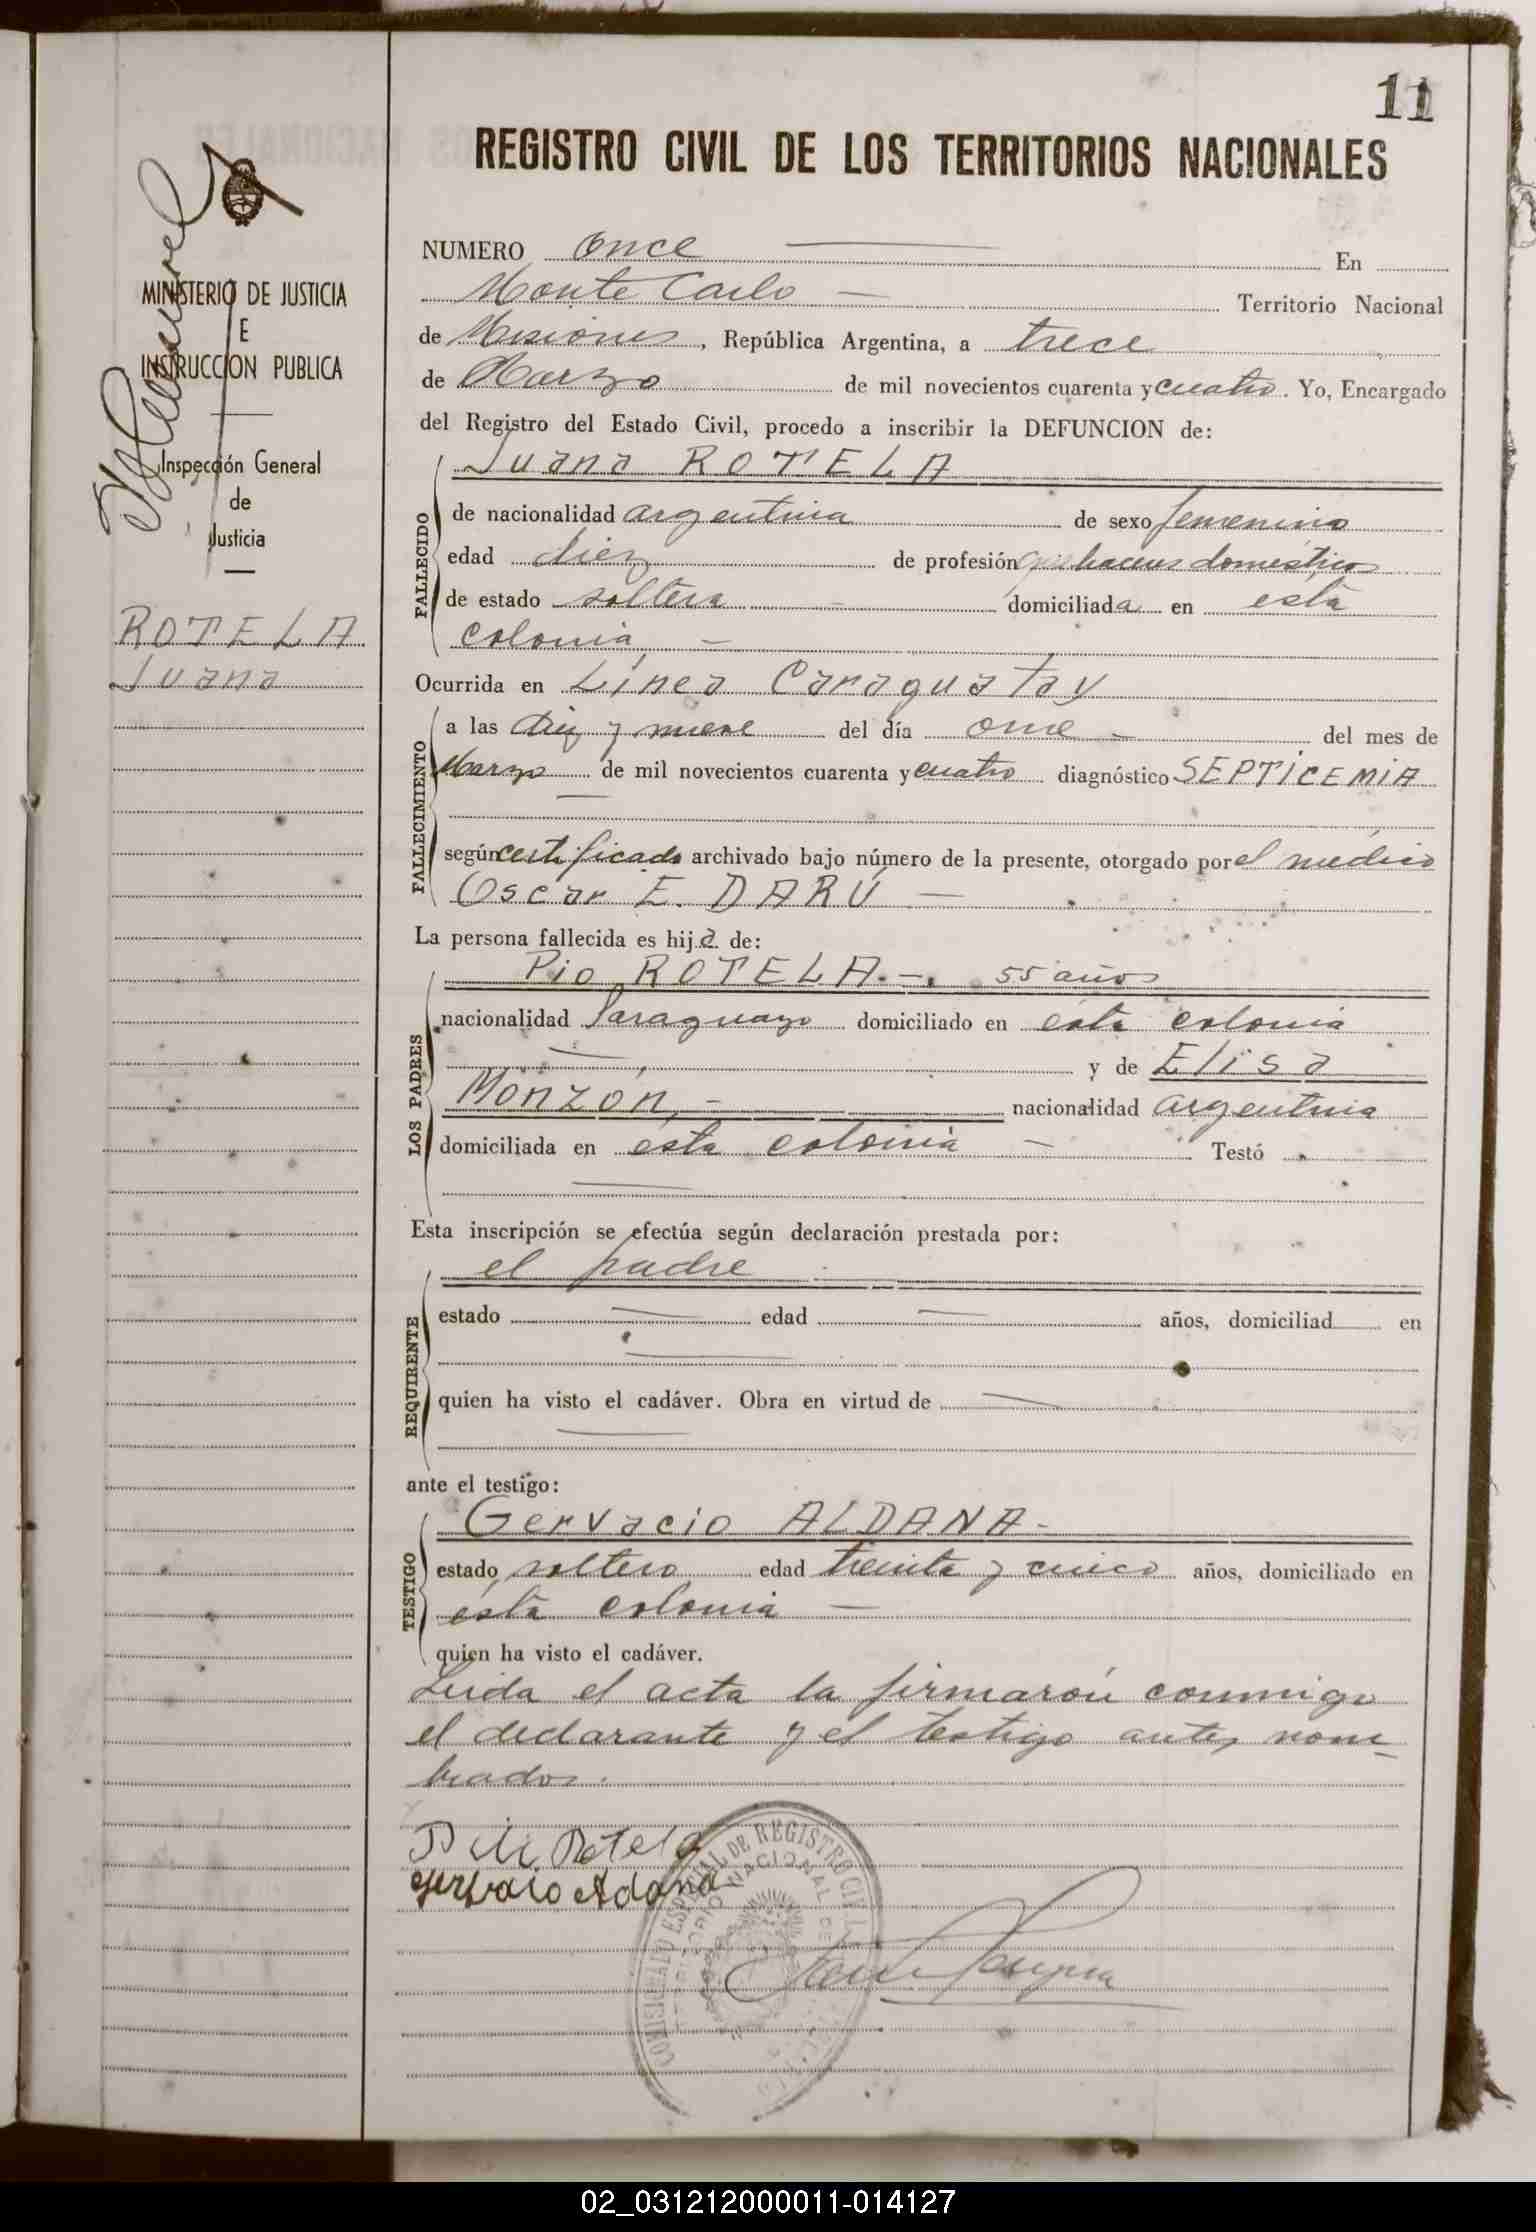 11
REGISTRO CIVIL DE LOS TERRITORIOS NACIONALES
MINISTERIO DE JUSTICIA
E
INSTRUCCION PUBLICA
Inspección General
de
Justicia
ROTELA
Juana
NUMERO once En
Monte Carlo — Territorio Nacional
de Misiones, República Argentina, a trece
de Marzo de mil novecientos cuarenta y cuatro. Yo, Encargado
del Registro del Estado Civil, procedo a inscribir la DEFUNCION de:
Juana ROTELA
FALLECIDO
de nacionalidad argentina de sexo femenino
edad diez de profesión quehaceres domésticos
de estado soltera domiciliada en esta
colonia —
Ocurrida en Línea Caraguatay
FALLECIMIENTO
a las diez y nueve del día once — del mes de
Marzo de mil novecientos cuarenta y cuatro diagnóstico SEPTICEMIA
según certificado archivado bajo número de la presente, otorgado por el médico
Oscar E. DARÚ —
La persona fallecida es hija de:
LOS PADRES
Pio ROTELA.—. 55 años
nacionalidad Paraguayo domiciliado en ésta colonia
y de Elisa
Monzón, — nacionalidad argentina
domiciliada en ésta colonia — Testó
Esta inscripción se efectúa según declaración prestada por:
REQUIRENTE
el padre
estado — edad — años, domiciliad en
quien ha visto el cadáver. Obra en virtud de —
ante el testigo:
TESTIGO
Gervacio ALDANA-
estado soltero edad treinta y cinco años, domiciliado en
ésta colonia —
quien ha visto el cadáver.
Leida el acta la firmarón conmigo
el declarante y el testigo antes nom-
brados.
Rotela
COMISIONADO ESPECIAL DE REGISTRO CIVIL
TERRITORIO NACIONAL DE
02_031212000011-014127